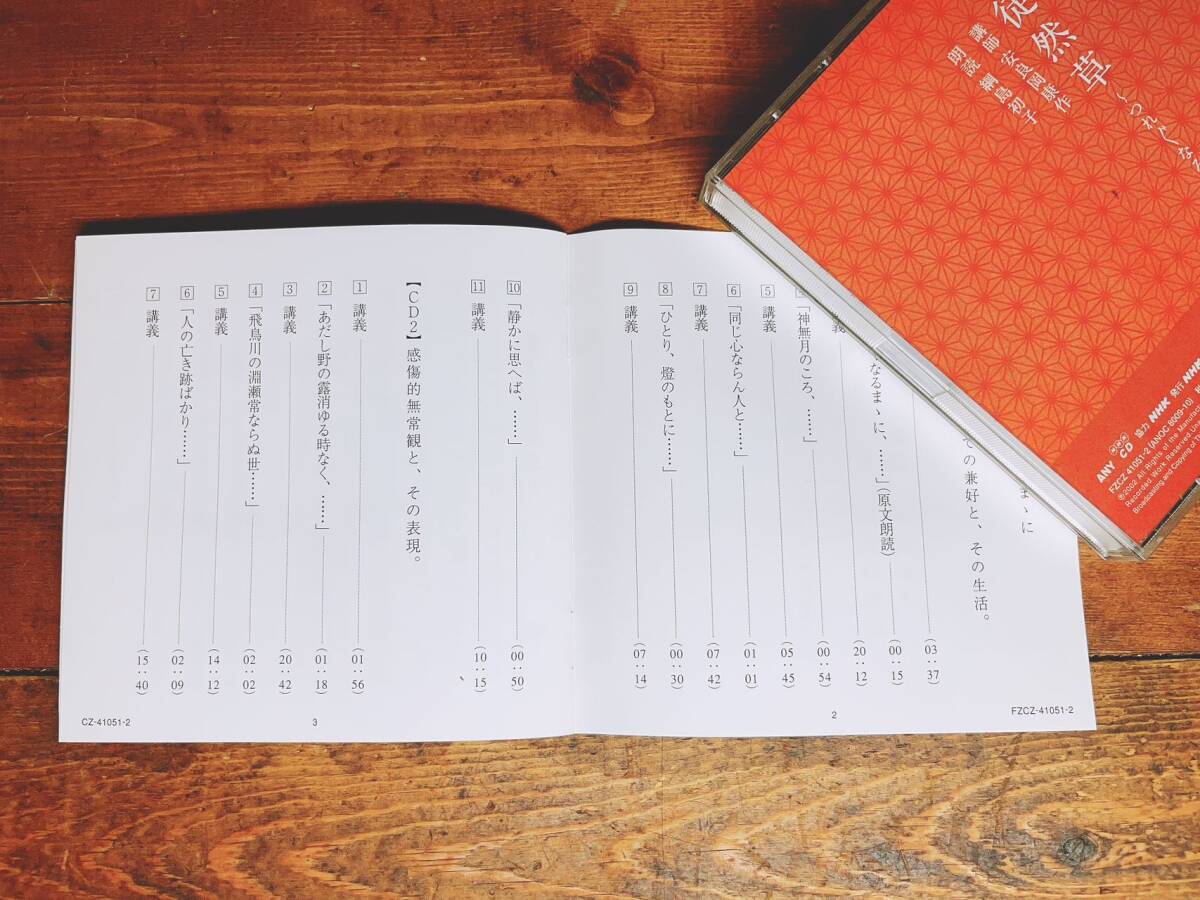 徒然草
～つれ〴〵な
講師 安良岡康作
朗読 綱島初子
ANY CD 協力 NHK 発行 NHK
FZCZ 41051-2 (ANOC 8009-10)
℗2002 All Rights of the Manufa
Recorded Work Reserved Un
Broadcasting and Copying of
まゝに
ての兼好と、その生活。
(03:37)
なるまゝに、……」(原文朗読) (00:15)
義 (20:12)
「神無月のころ、……」 (00:54)
5 講義 (05:45)
6 「同じ心ならん人と……」 (01:01)
7 講義 (07:42)
8 「ひとり、燈のもとに……」 (00:30)
9 講義 (07:14)
2
FZCZ-41051-2
10 「静かに思へば、……」 (00:50)
11 講義 (10:15)
【CD2】感傷的無常観と、その表現。
1 講義 (01:56)
2 「あだし野の露消ゆる時なく、……」 (01:18)
3 講義 (20:42)
4 「飛鳥川の淵瀬常ならぬ世……」 (02:02)
5 講義 (14:12)
6 「人の亡き跡ばかり……」 (02:09)
7 講義 (15:40)
CZ-41051-2
3